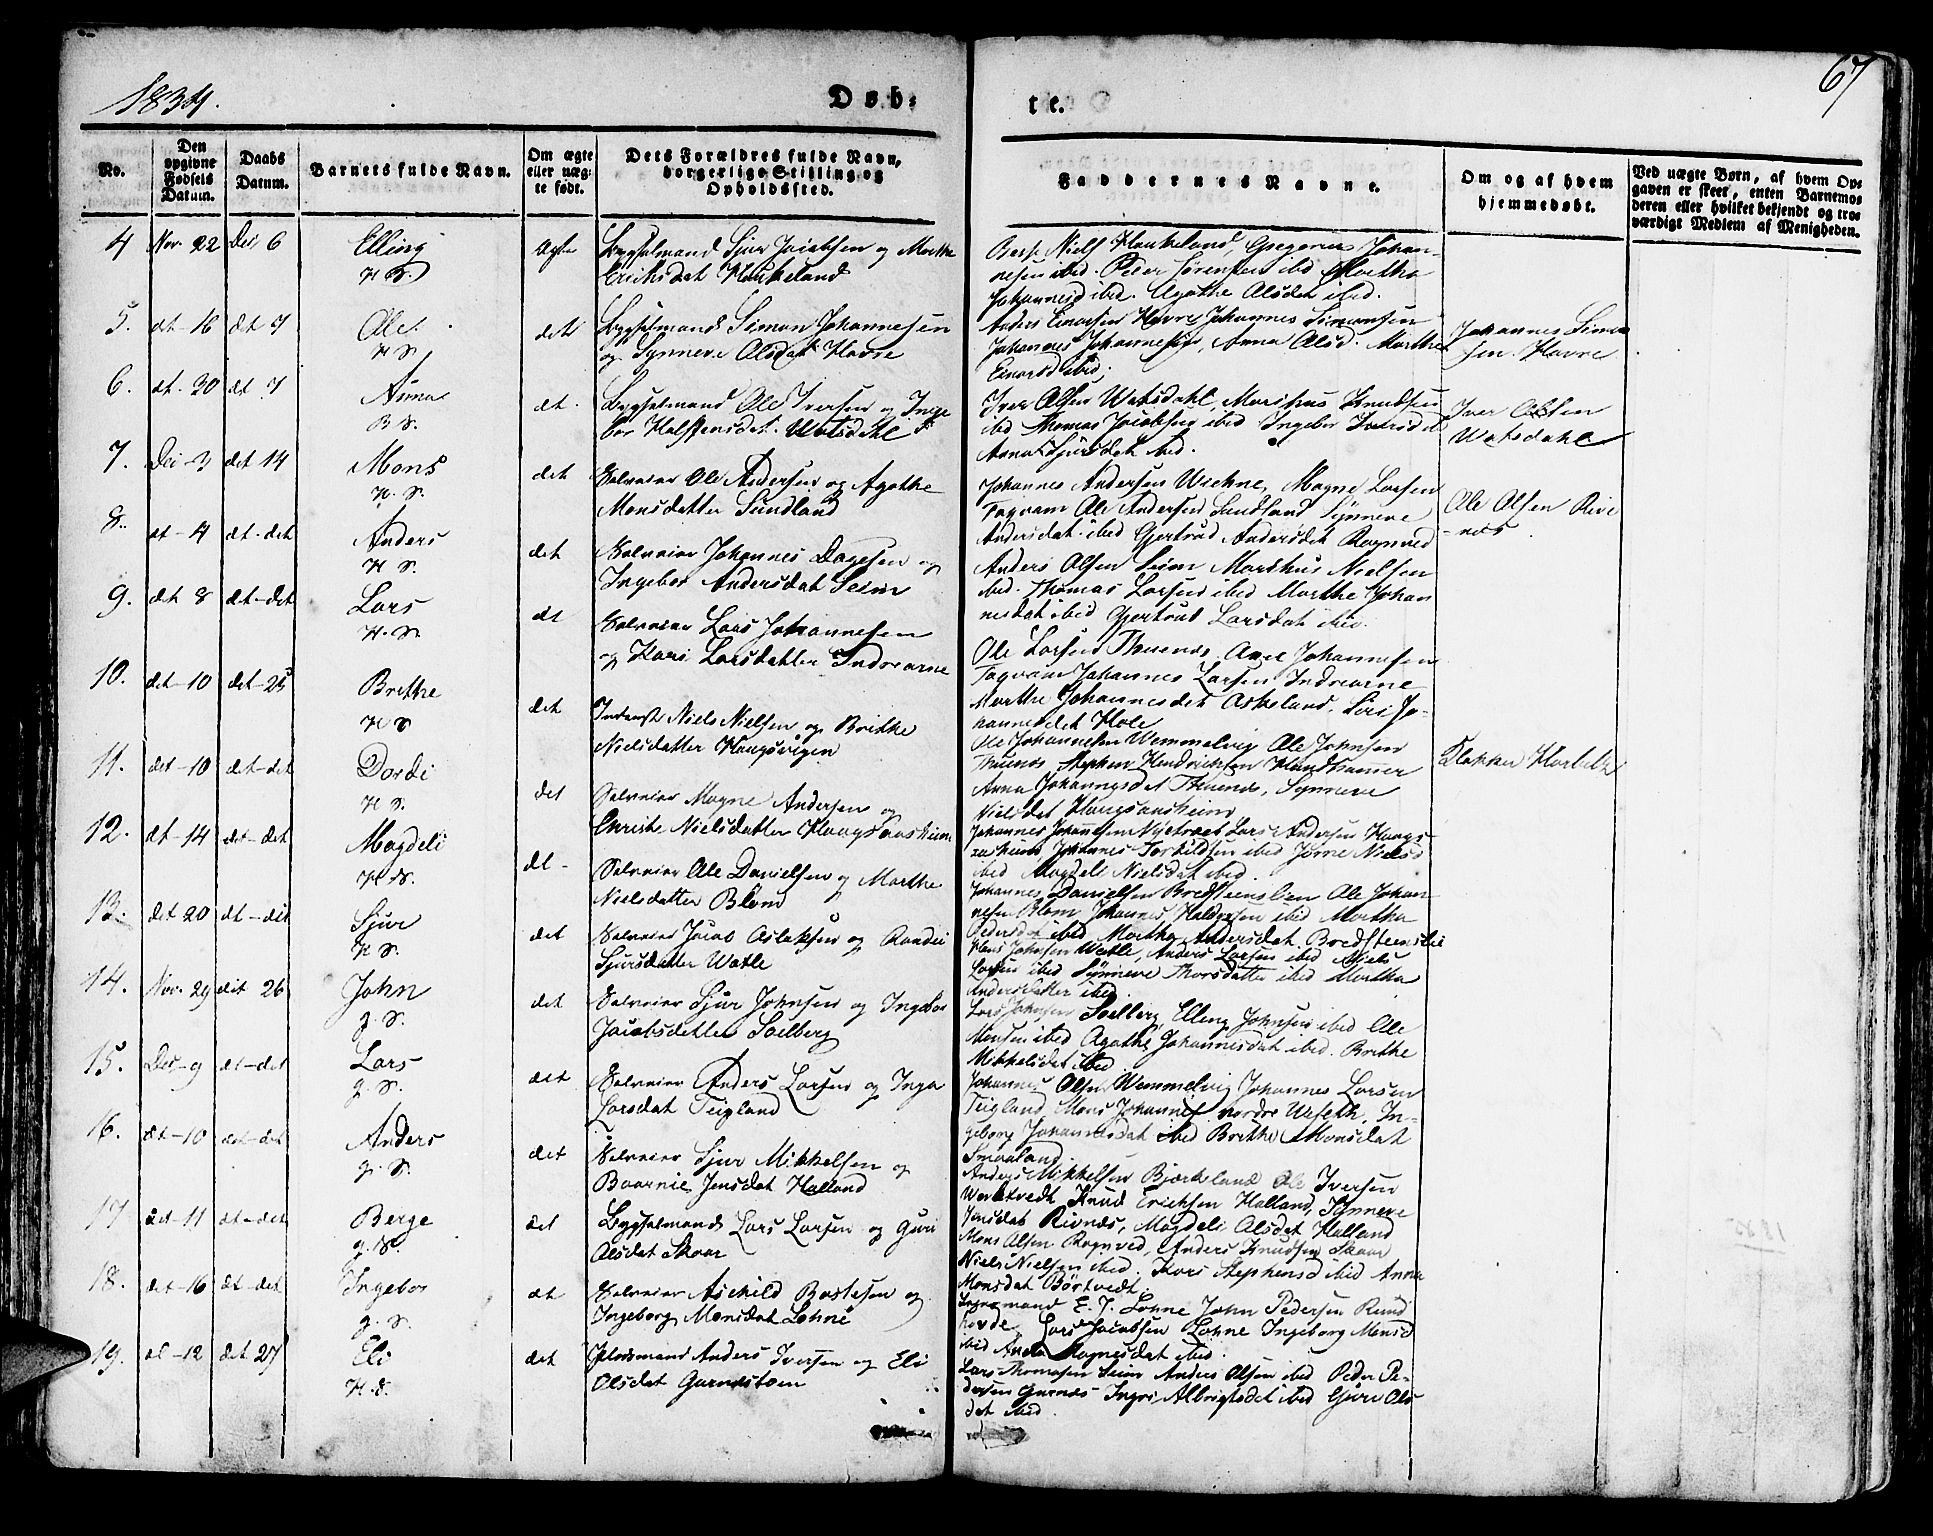 1834.
Døb-
te.
67
No.
Den opgivne Fødsels Datum.
Daabs Datum.
Barnets fulde Navn.
Om ægte eller uægte født.
Dets Forældres fulde Navn, borgerlige Stilling og Opholdssted.
Faddernes Navne.
Om og af hvem hjemmedøbt.
Ved uægte Børn, af hvem Opgaven er skeet, enten Barnemoderen eller hvilket bekjendt og troværdigt Medlem af Menigheden.
4 Nov. 22 Dec 6 Elling Ægte Bygselmand Sjur Jacobsen og Marthe
H S. Ericksdat Haukeland
Niels Haukeland, Gregorius Johan-
nesen ibid. Peder Sørensen ibid Martha
Johannesd ibid. Agathe Olsdat ibid.
5. dt 16 dt 7 Ole. det Bygselmand Simon Johannesen
H S. og Synneve Olsdat Havre
Anders Einarsen Havre Johannes Simonsen
Johannes Johannesen, Anna Olsd. Marthe
Einarsd ibid;
Johannes Simon
sen. Havre
6. dt. 30 dt 7 Anna dt. Bygselmand Ole Iversen og Inge
B S. bor Halstensdat. Watsdahl
Iver Olsen Watsdahl, Markus Knudsen
ibid Thomas Jacobsen ibid Ingebor Iversdat
Anna Sjursdat ibid.
Iver Olsen
Watsdahl
7. Dec 3 det 14 Mons det Selveier Ole Andersen og Agathe
H. S. Monsdatter Sundland
Johannes Andersen Wiekne, Magne Larsen
Fagvam Ole Andersen Sundland Synneve
Andersdat ibid Gjertrud Andersdet Rognved
Ole Olsen Rive
-nes
8. dt - 4 dt. det Anders det Selveier Johannes Dagesen og
H S. Ingebor Andersdat Seim
Anders Olsen Seim Markus Nielsen
ibid. Thomas Larsen ibid Marthe Johan
nesdat ibid Gjertrud Larsdat ibid.
9. det 8 dt-det Lars dt Selveier Lars Johannesen
H. S. og Kari Larsdatter Indrearne
Ole Larsen Thuenes, Johannesen
Fagvam Johannes Larsen Indrearne
Marthe Johannesdet Askeland. Siri Jo-
hannesdet Hole
10. det-10 det-25 Brithe det Niels Nielsen og Brithe
H S Nielsdatter Haugsvigen
Ole Johannesen Wemmelvig Ole Johnsen
Thuenes Stephen Hendricksen Haugshammer
Anna Johannesdet Thuenes, Synneve
Nielsdet Haugsaasheim
Klokker Harbitz
11. det-10 det-det Dordi det Selveier Magne Andersen og
H S. Christi Nielsdatter Haugsaasheim
Johannes Johannesen Nyetræet Lars Andersen Haugs-
aasheim Johannes Torkildsen ibid Jørne Nielsd
ibid Magdeli Nielsdat ibid.
12. dt-14 det-det Magdeli dt- Selveier Ole Danielsen og Marthe
H S. Nielsdatter Blom
Johannes Danielsen Bredsteenslien Ole Johan-
nesen Blom Johannes Haldorsen ibid Martha
Pedersdat ibid Martha Andersdat. Bredsteenslie
13. det 20 dt-det Sjur det Selveier Jacob Aslaksen og Randi
H S. Sjursdatter Watle
Johnsen Watle, Anders Larsen ibid Niels
Larsen ibid Synneve Thorsdatter ibid Martha
Andersdatter ibid.
14. Nov. 29 det 26 John det Selveier Sjur Johnsen og Ingebor
g. S. Jacobsdatter Solberg
Lars Johnsen Solberg, Elling Johnsen ibid Ole
Monsen ibid Agathe Johannesdat ibid. Brithe
Mikkelsdet ibid
15. Dec-9 dt-det Lars det Selveier Anders Larsen og Inga
g. S. Larsdat Teigland
Johannes Olsen Wemmelvig Johannes Larsen
Teigland, Mons Johannes nordre Urseth, In-
geborg Johannesdat ibid Brithe Monsdat
Smaaland
16. dt-10 det-det Anders det Selveier Sjur Mikkelsen og
g. S. Baarnie Jensdat Halland
Anders Mikkelsen Bjørkeland Ole Iversen
Werktvedt Knud Ericksen Halland, Synneve
Jensdat Rivnæs, Magdeli Olsdat Halland
17 det-11 dt-det Berge det Bygselmand Lars Larsen og Guri
g. S. Olsdat Skaar
Mons Olsen Rognved, Anders Knudsen Skaar
Niels Nielsen ibid. Kari Stephensd ibid Anna
Monsdat Børtvedt
18. det-16 dt-det Ingebor dt Selveier Askild Bastesen og
g. S. Ingeborg Monsdat Lohne
E. J. Lohne John Pedersen Rund
hovde, Lars Jacobsen Lohne Ingeborg Monsd
ibid Anna Magnesdat ibid.
19. dt-12 det 27 Eli det Pladsmand Anders Iversen og Eli
H. S. Olsdat Garnestoen
Lars Thomasen Seim Anders Olsen ibid Peder Pe-
dersen Garnæs Ingri Albrigtsdet ibid Gjøri Ols
dat ibid.